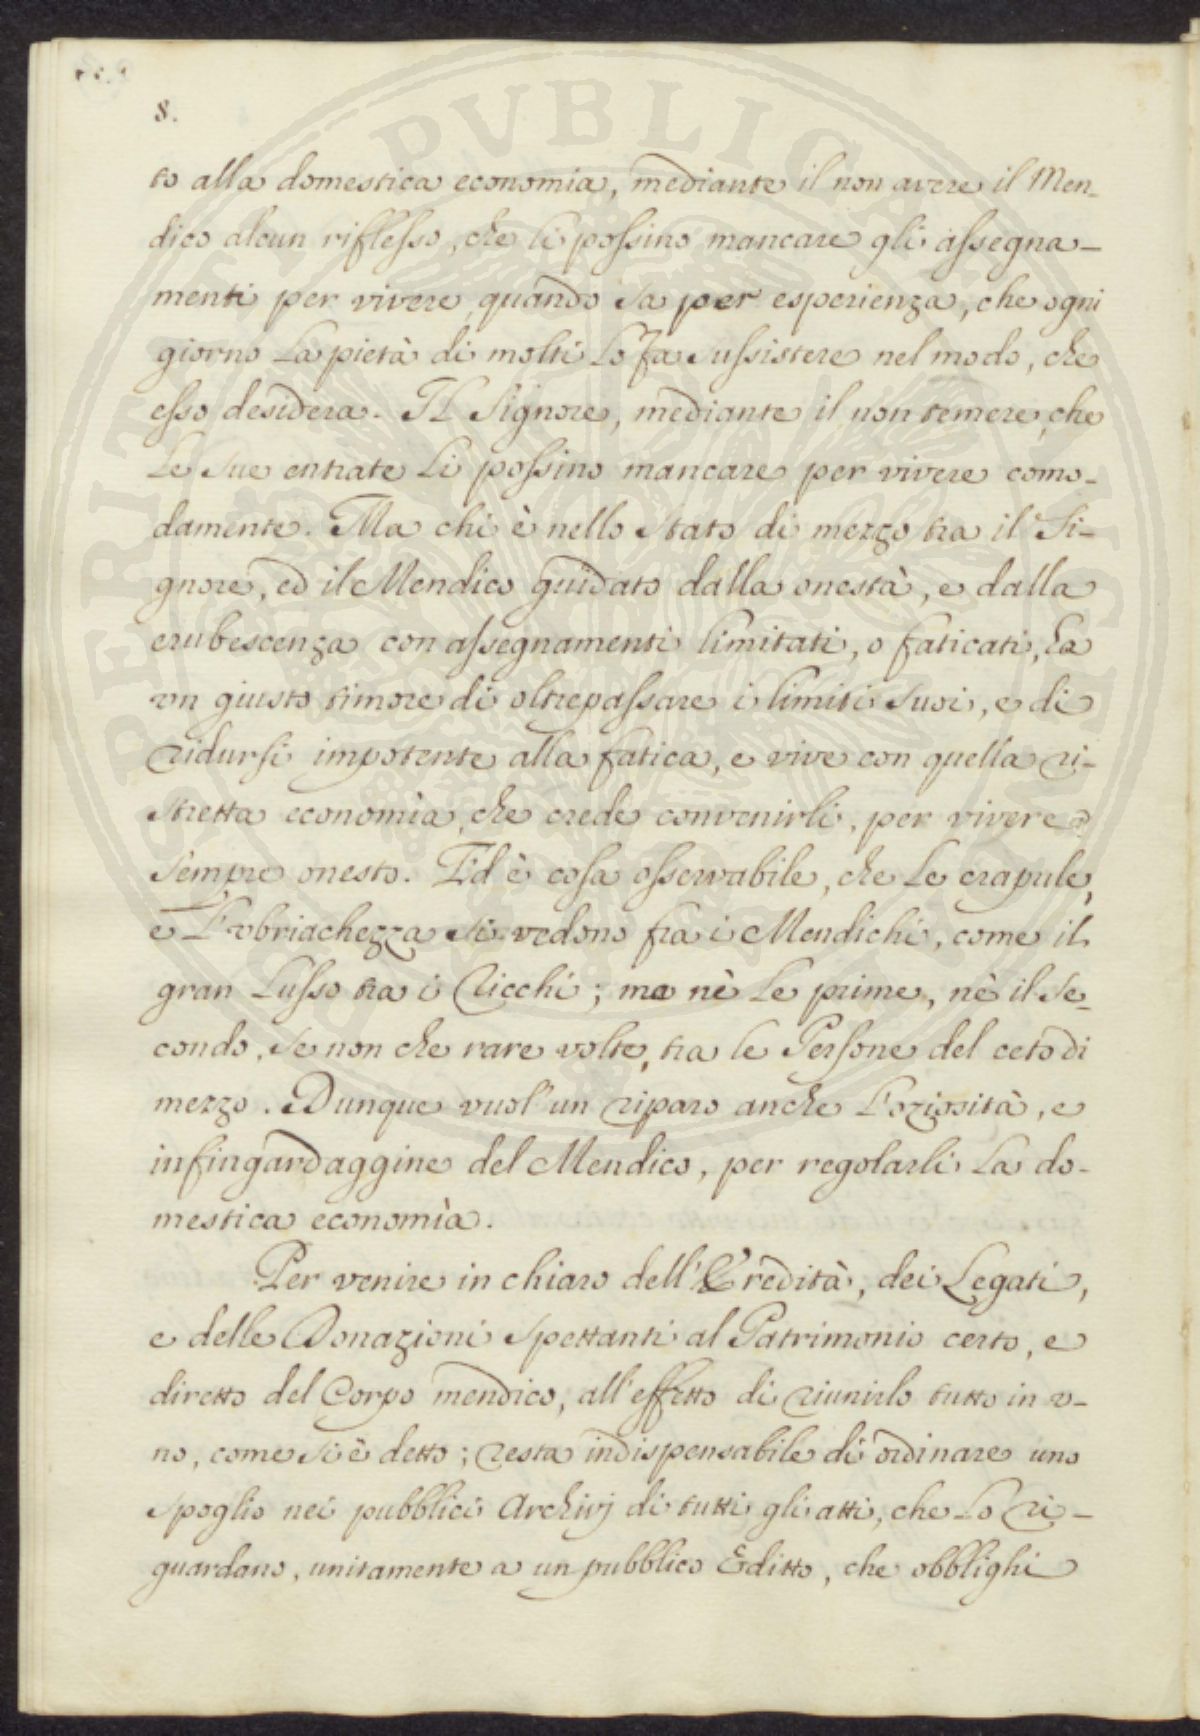 8.
to alla domestica economia, mediante il non avere il Men-
dico alcun riflesso, che li possino mancare gli assegna-
menti per vivere, quando sa per esperienza, che ogni
giorno la pietà di molti lo fa sussistere nel modo, che
esso desidera. Il Signore, mediante il non temere, che
le sue entrate li possino mancare per vivere como-
damente. Ma chi è nello stato di mezzo tra il Si-
gnore, ed il Mendico guidato dalla onestà, e dalla
erubescenza con assegnamenti limitati, o faticati, ha
un giusto timore di oltrepassare i limiti suoi, e di
ridursi impotente alla fatica, e vive con quella ri-
stretta economìa, che crede convenirli, per vivere
sempre onesto. Ed è cosa osservabile, che le crapule,
e l'vbriachezza si vedono fra i Mendichi, come il
gran lusso tra i Ricchi; ma nè le prime, nè il se-
condo, se non che rare volte, tra le Persone del ceto di
mezzo. Dunque vuol'un riparo anche l'oziosità, e
infingardaggine del Mendico, per regolarli la do-
mestica economìa.
Per venire in chiaro dell'Eredità, dei Legati,
e delle Donazioni spettanti al Patrimonio certo, e
diretto del Corpo mendico, all'effetto di riunirlo tutto in v-
no, come si è detto; resta indispensabile di ordinare uno
spoglio nei pubblici Archivj di tutti gli atti, che lo ri-
guardano, unitamente a un pubblico Editto, che obblighi
PUBLICAE